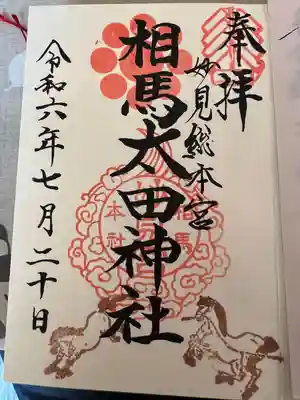 奉拝
妙見総本宮
相馬太田神社
令和六年七月二十日